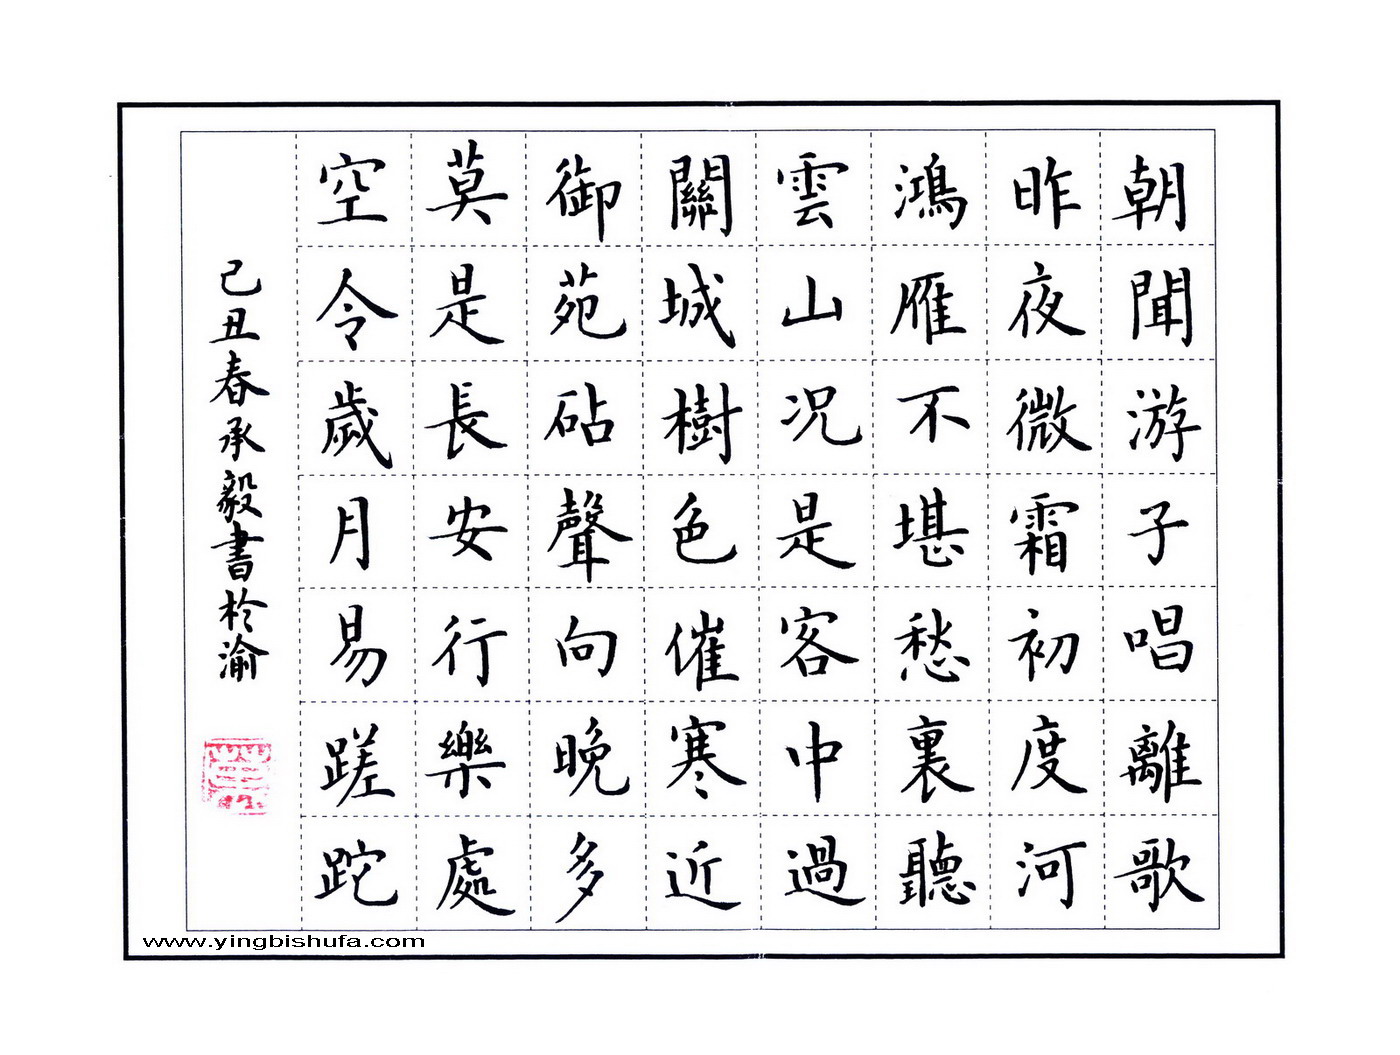 朝聞游子唱離歌
昨夜微霜初度河
鴻雁不堪愁裏聽
雲山況是客中過
關城樹色催寒近
御苑砧聲向晚多
莫是長安行樂處
空令歲月易蹉跎
己丑春承毅書於渝
www.yingbishufa.com